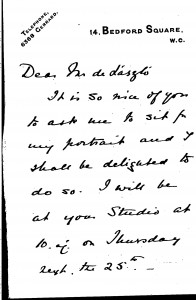 TELEPHONE,
6369 GERRARD.
14, BEDFORD SQUARE,
W.C.
Dear Mr de László
It is so nice of you
to ask me to sit for
my portrait and I
shall be delighted to
do so. I will be
at your Studio at
10. on Thursday
next. the 25th. —